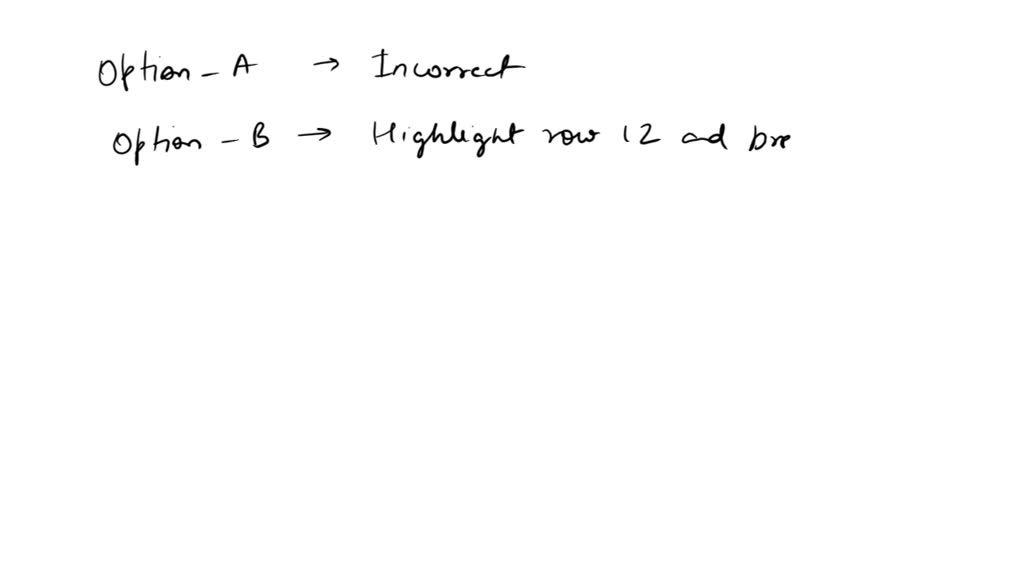 Option - A → Incorrect
Option - B → Highlight row 12 and bre